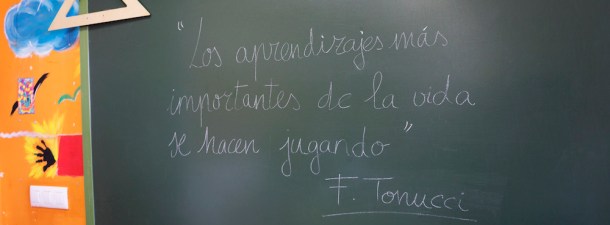 "Los aprendizajes más
importantes de la vida
se hacen jugando"
F. Tonucci